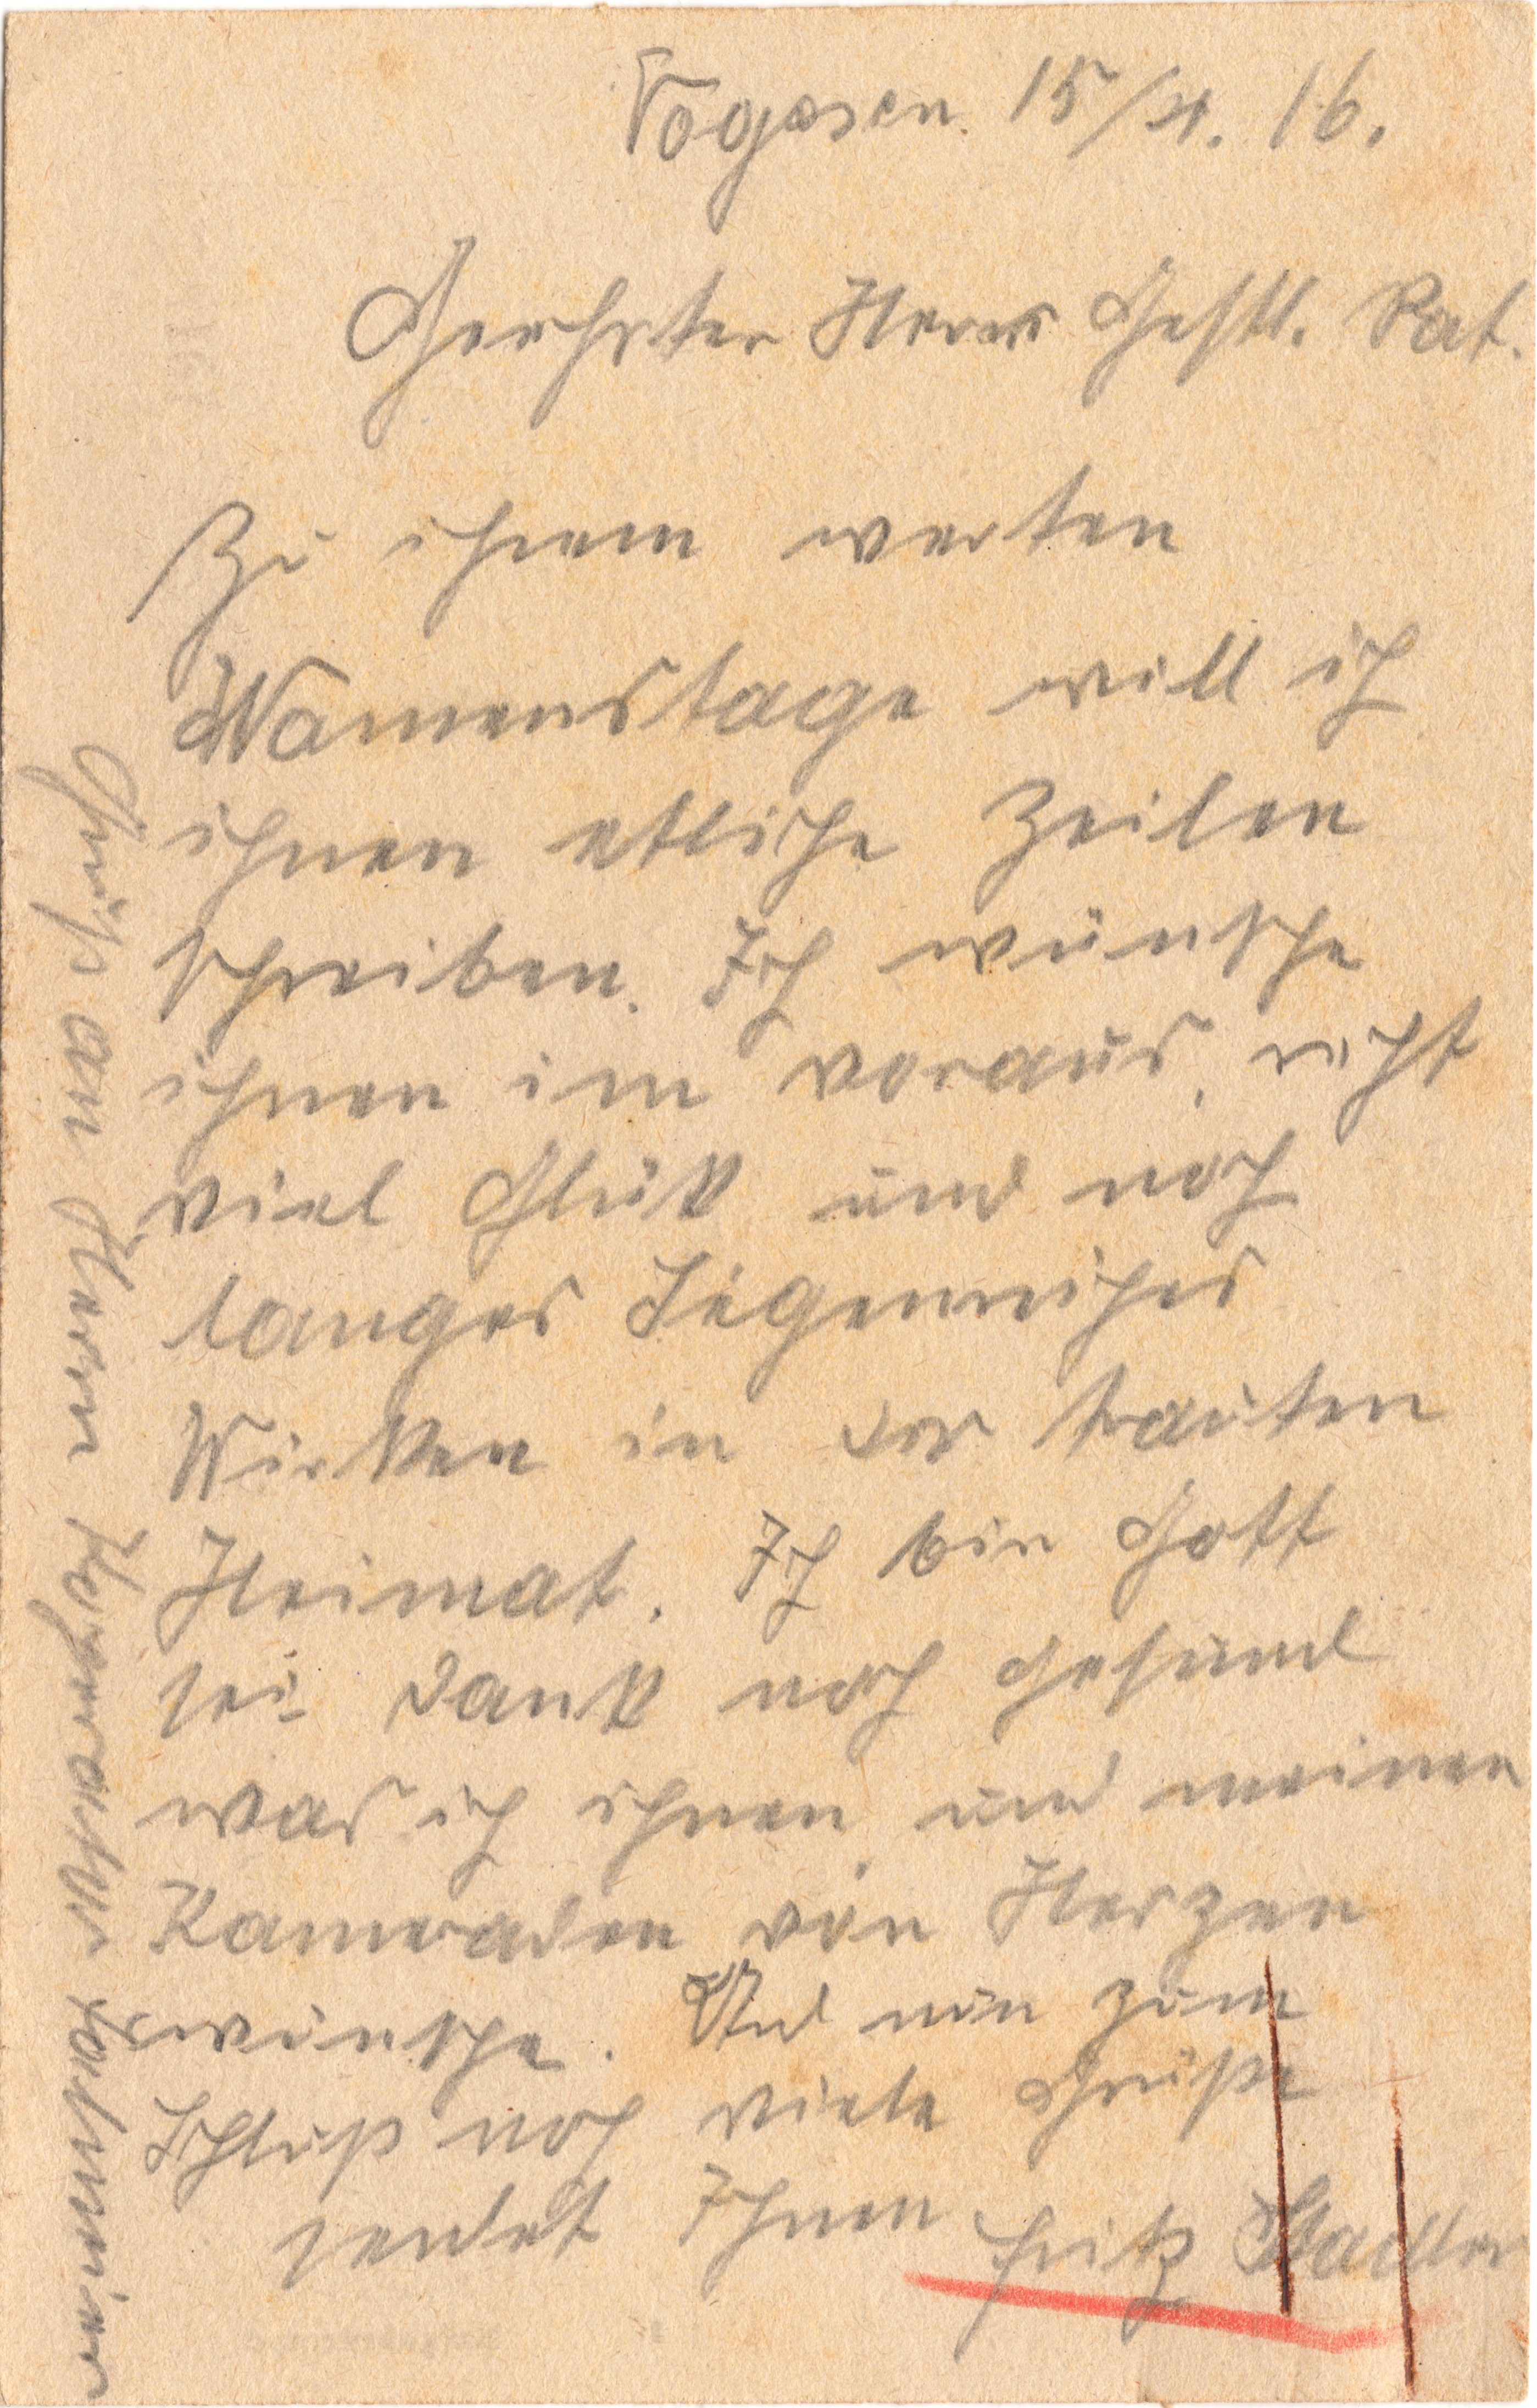 Vogesen 15/11. 16.
Geehrter Herr Geistl. Rat.
Zu ihrem werten
Namenstage will ich
ihnen etliche Zeilen
schreiben. Ich wünsche
ihnen im voraus, recht
viel Glück und noch
langes Segenreiches
Wirken in der trauten
Heimat. Ich bin Gott
sei Dank noch gesund
was ich ihnen und meinen
Kameraden von Herzen
wünsche. Und nun zum
Schluß noch viele Grüße
sendet Ihnen Fritz Stadler
Grüße an Herrn Kooperator